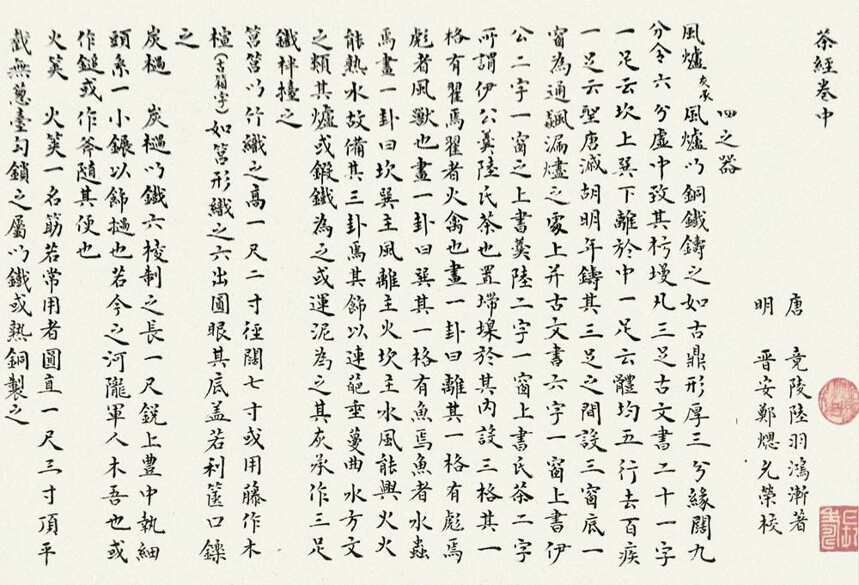 茶經卷中
唐　竟陵陸羽鴻漸著
明　晉安鄭煾允榮校
四之器
風爐灰承　風爐以銅鐵鑄之如古鼎形厚三分緣闊九
分令六分虛中致其杇墁凡三足古文書二十一字
一足云坎上巽下離於中一足云體均五行去百疾
一足云聖唐滅胡明年鑄其三足之間設三窗底一
窗為通飆漏燼之處上并古文書六字一窗上書伊
公二字一窗之上書羹陸二字一窗上書氏茶二字
所謂伊公羹陸氏茶也置墆㙞於其內設三格其一
格有翟焉翟者火禽也畫一卦曰離其一格有彪焉
彪者風獸也畫一卦曰巽其一格有魚焉魚者水蟲
焉畫一卦曰坎巽主風離主火坎主水風能興火火
能熱水故備其三卦焉其飾以連葩垂蔓曲水方文
之類其爐或鍛鐵為之或運泥為之其灰承作三足
鐵柈擡之
筥筥以竹織之高一尺二寸徑闊七寸或用藤作木
楦(古箱字)如筥形織之六出圓眼其底蓋若利篋口鑠
之
炭檛　炭檛以鐵六稜制之長一尺銳上豐中執細
頭系一小𨰿以飾檛也若今之河隴軍人木吾也或
作鎚或作斧隨其便也
火筴　火筴一名筯若常用者圓直一尺三寸頂平
截無蔥臺勾鎖之屬以鐵或熟銅製之